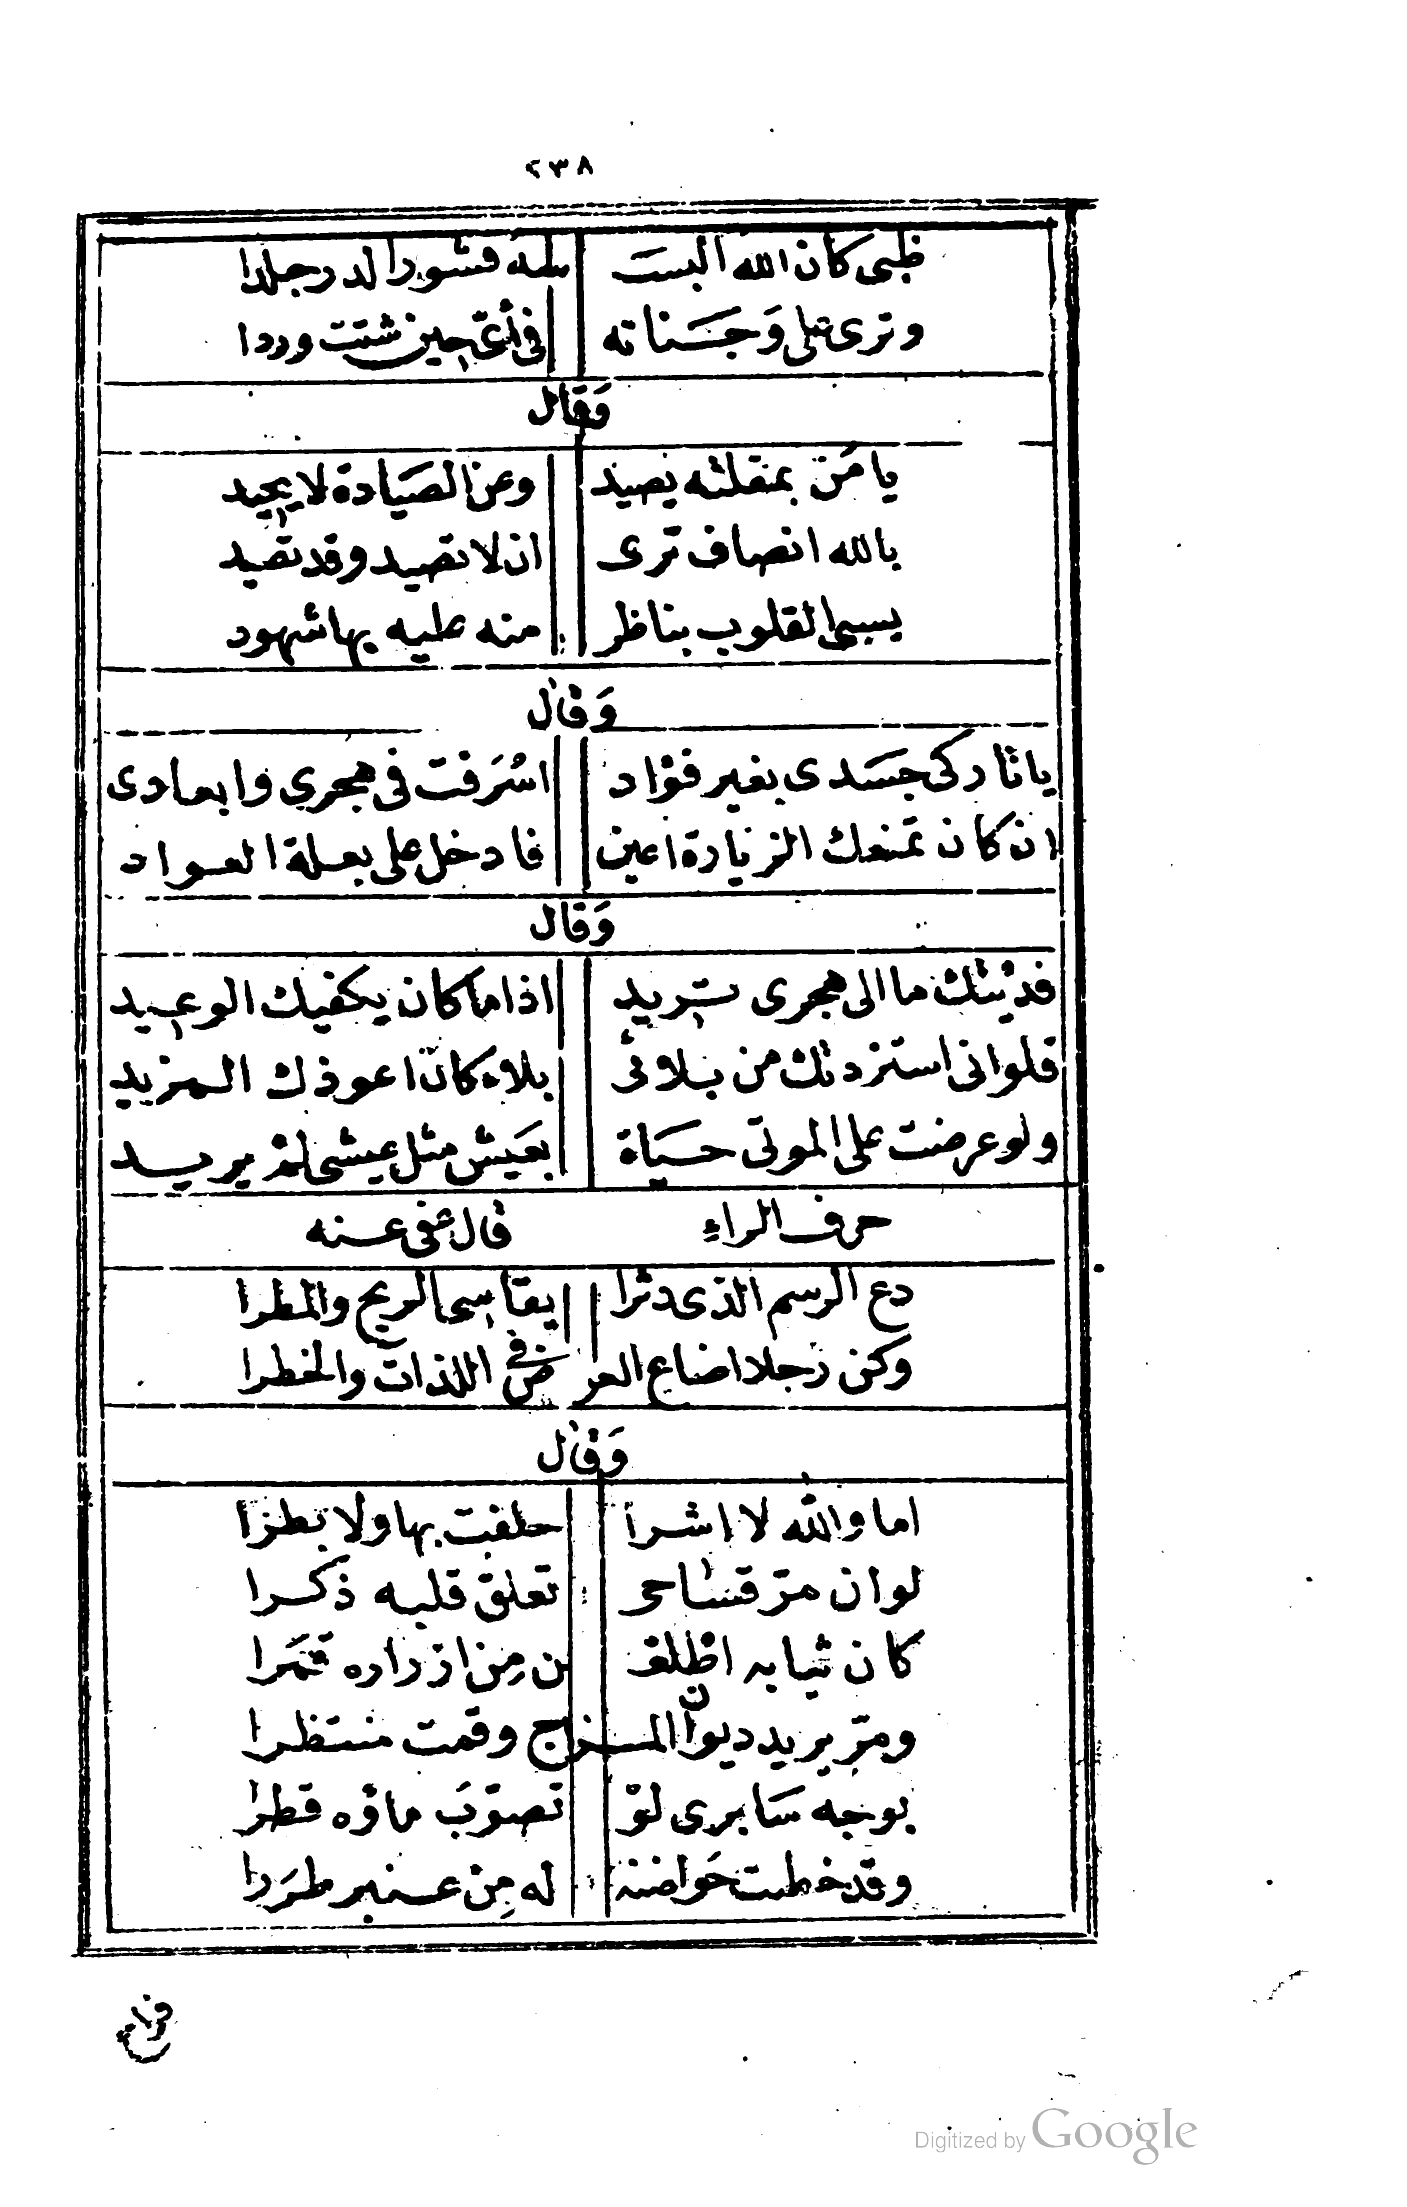 ٢٣٨
ظبى كان الله البست سه قشورا لدر جلدا
وترى على وَجَناته فى أىّ حين شئت وردا
وَقال
يا مَن بمقلته يصيد وعن الصَيادة لا يحيد
بالله انصاف ترى ان لا تصيد وقد تصيد
يسبى القلوب بناظر منه عليه بها شهود
وَقال
يا تاركى جسَدى بغير فؤاد اسْرَفت فى هجرى وابعادى
ان كان تمنعك الزيارة اعين فادخل على بعلة العواد
وَقال
فديْتك ما الى هجرى تريد اذا ما كان يكفيك الوعيد
فلوانى استزدتك من بلائى بلاء كان اعوذك المزيد
ولو عرضت على الموتى حيَاة بعَيش مثل عيشى لمْ يريد
حرف الراء قال عفى عنه
دع الرسم الذى دثرا يقاسى الريح والمطرا
وكن رجلا اضاع العرض فى اللذات والخطرا
وَقال
اما والله لا اشرا حلفت بها ولا بطرا
لو ان مرّ قسًا حى تعلق قلبه ذكرا
كان ثيابه اطلعن مِن ازراره قمَرا
ومرّ يريد ديوان الخراج وقمت منتظرا
بوجه سَابرى لوْ تصوّبَ ماؤه قطرا
وقد خطت حَواضنه له مِنْ عنبر طرَرا
Digitized by Google